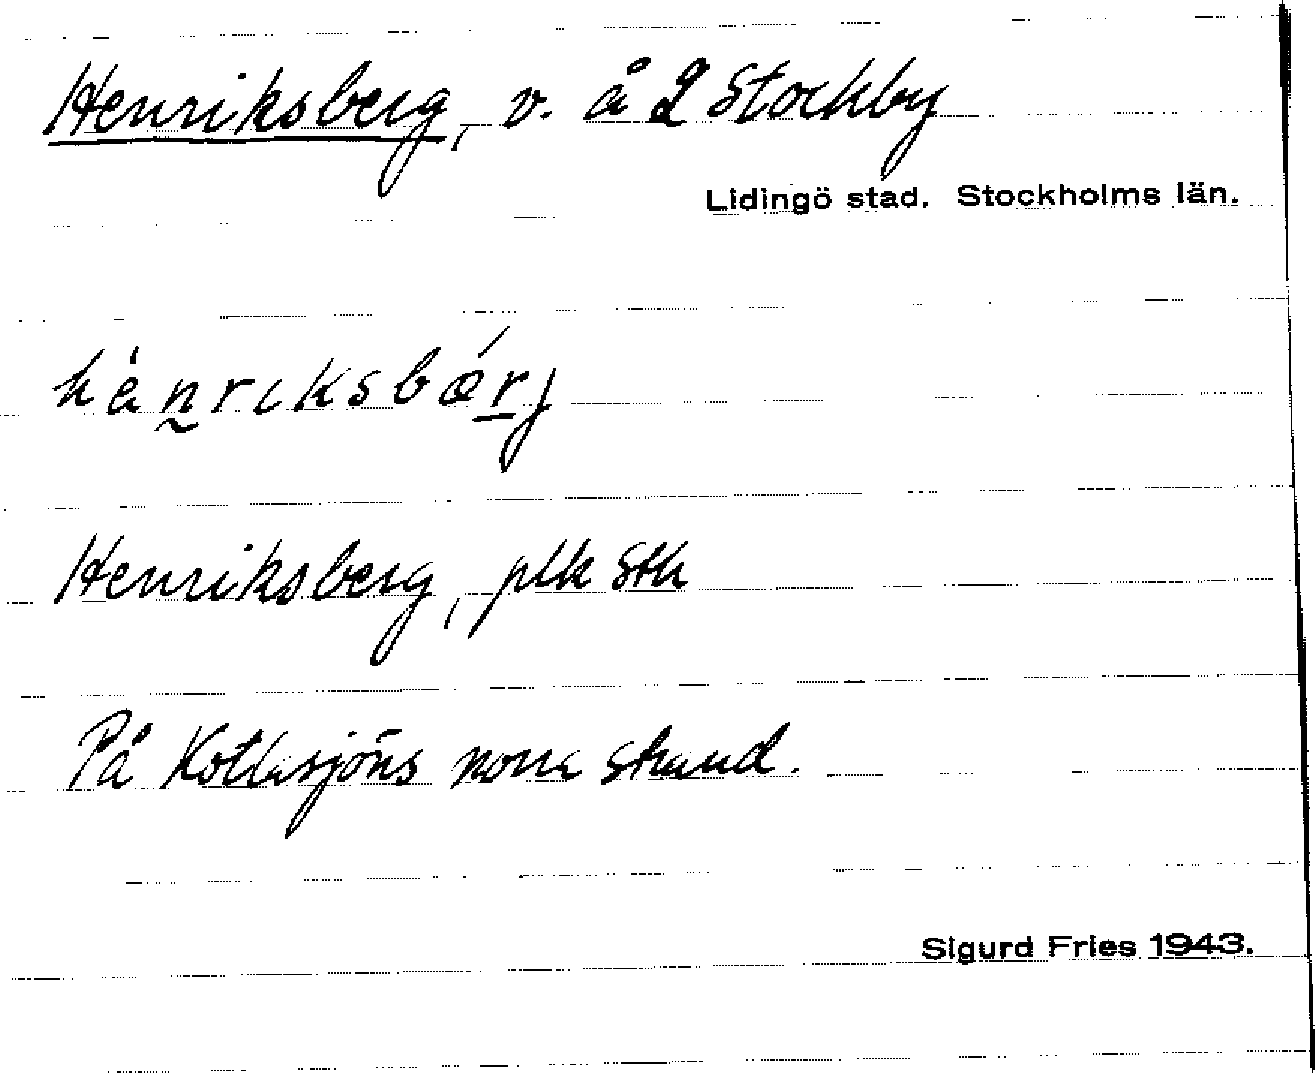 Henriksberg, v. å 2 Stockby
Lidingö stad. Stockholms län.
hènrıksbærj
Henriksberg, plk Sth
På Kottlasjöns norra strand.
Sigurd Fries 1943.